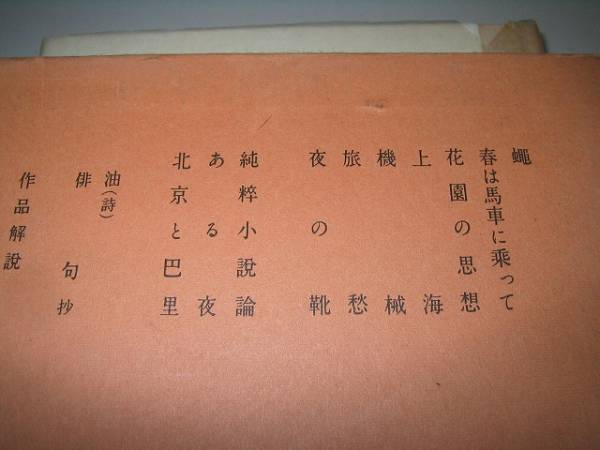 蠅
春は馬車に乗って
花園の思想
上海
機械
旅愁
夜の靴
純粋小説論
ある夜
北京と巴里
油(詩)
俳句抄
作品解說